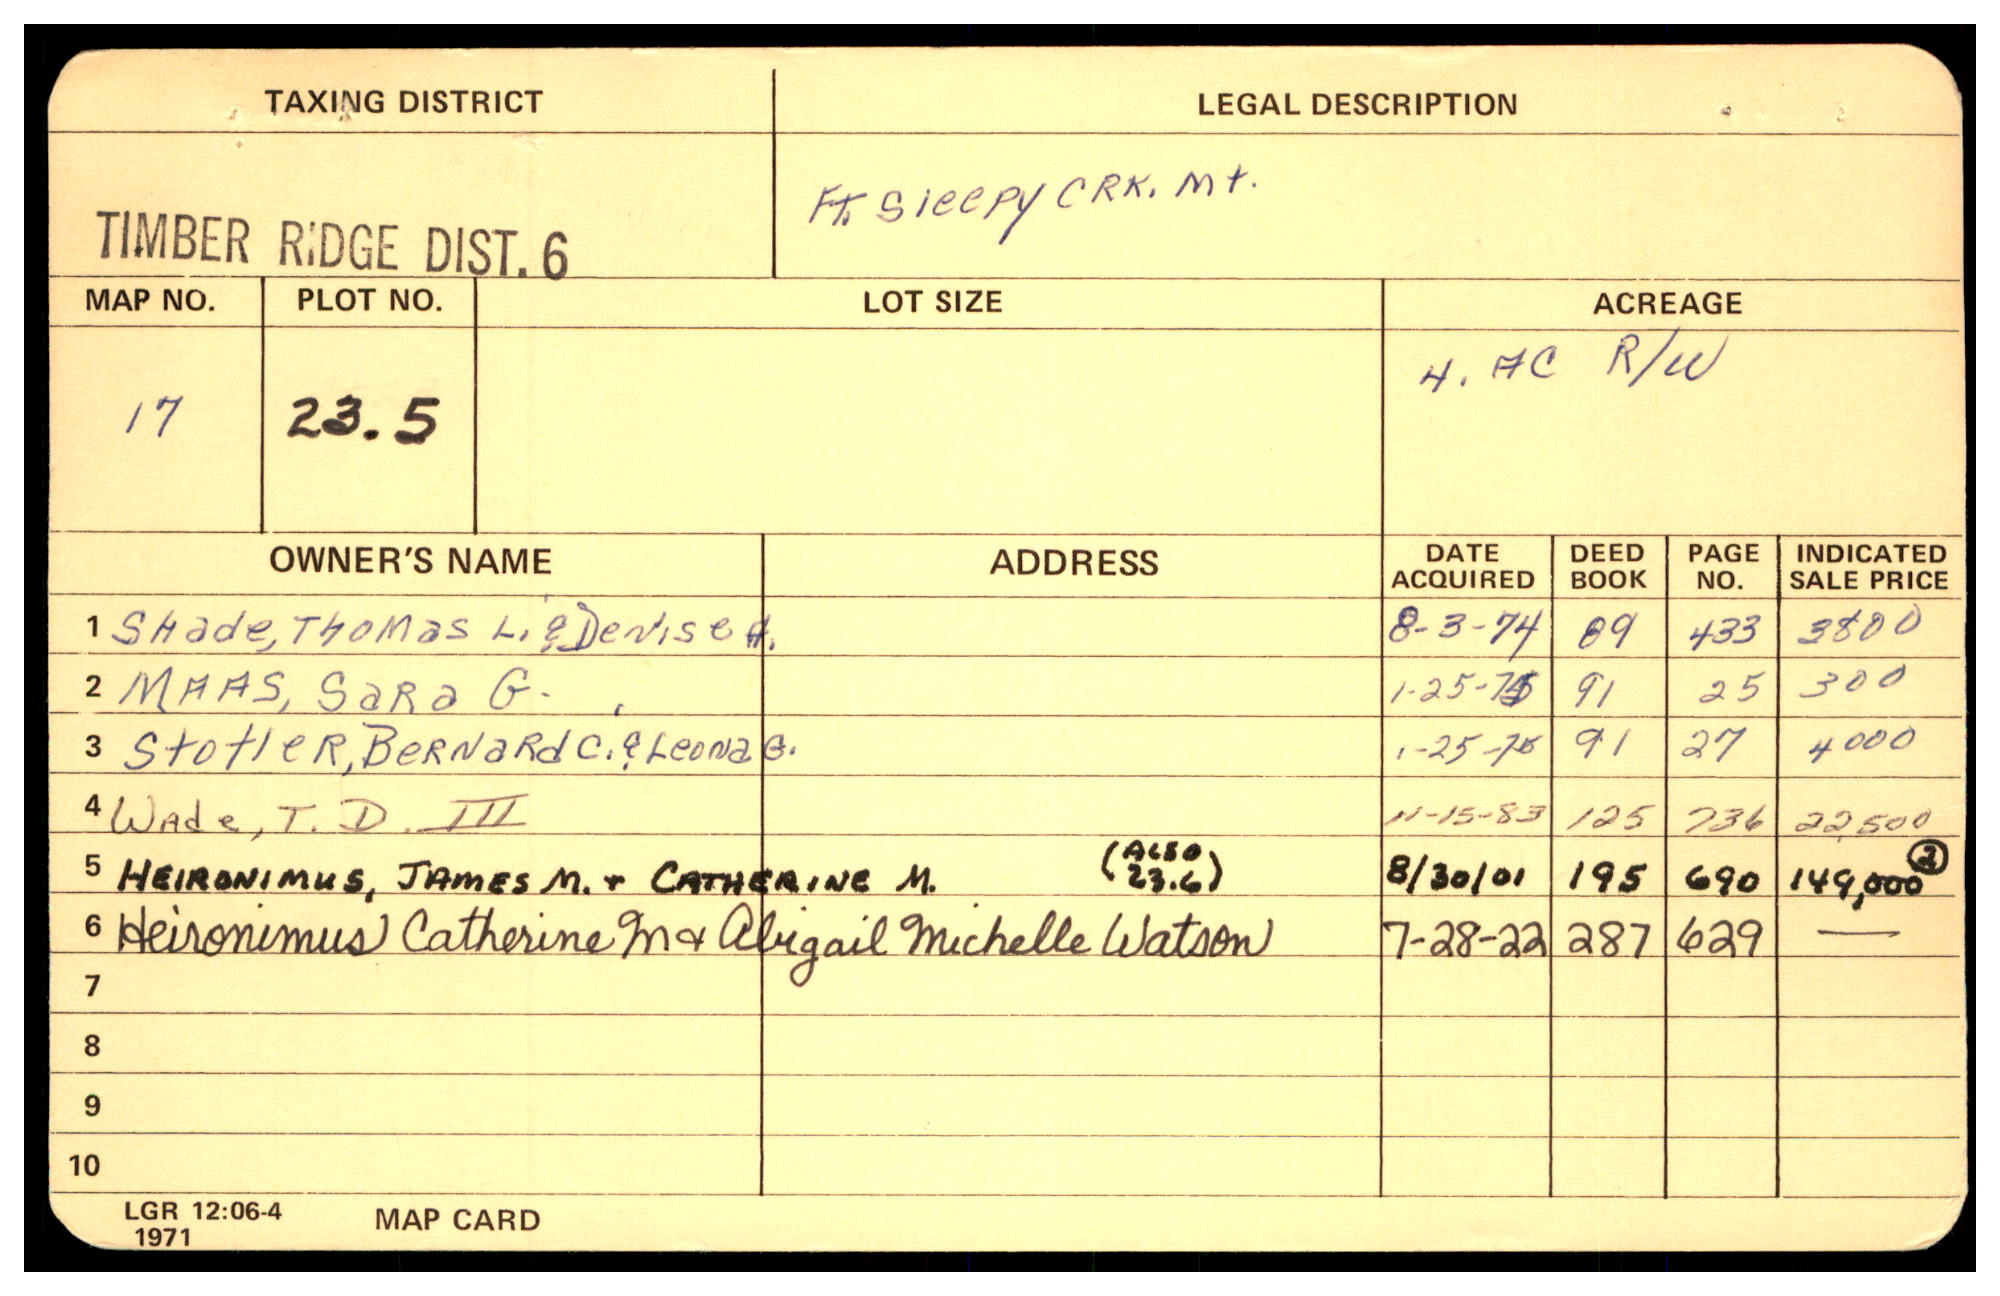 TAXING DISTRICT LEGAL DESCRIPTION
TIMBER RIDGE DIST. 6 Ft. Sleepy CRK. Mt.
MAP NO. PLOT NO. LOT SIZE ACREAGE
17 23.5 4. AC R/W
OWNER'S NAME ADDRESS DATE ACQUIRED DEED BOOK PAGE NO. INDICATED SALE PRICE
1 SHade, THOMas L. & Denise A. 8-3-74 89 433 3800
2 MAAS, SaRa G. 1-25-75 91 25 300
3 StotleR, BeRNaRd C. & Leona G. 1-25-75 91 27 4000
4 WAde, T. D. III 11-15-83 125 736 22,500
5 HEIRONIMUS, JAMES M. + CATHERINE M. (ALSO 23.6) 8/30/01 195 690 149,000 (2)
6 Heironimus Catherine M & Abigail Michelle Watson 7-28-22 287 629 —
7
8
9
10
LGR 12:06-4 MAP CARD
1971